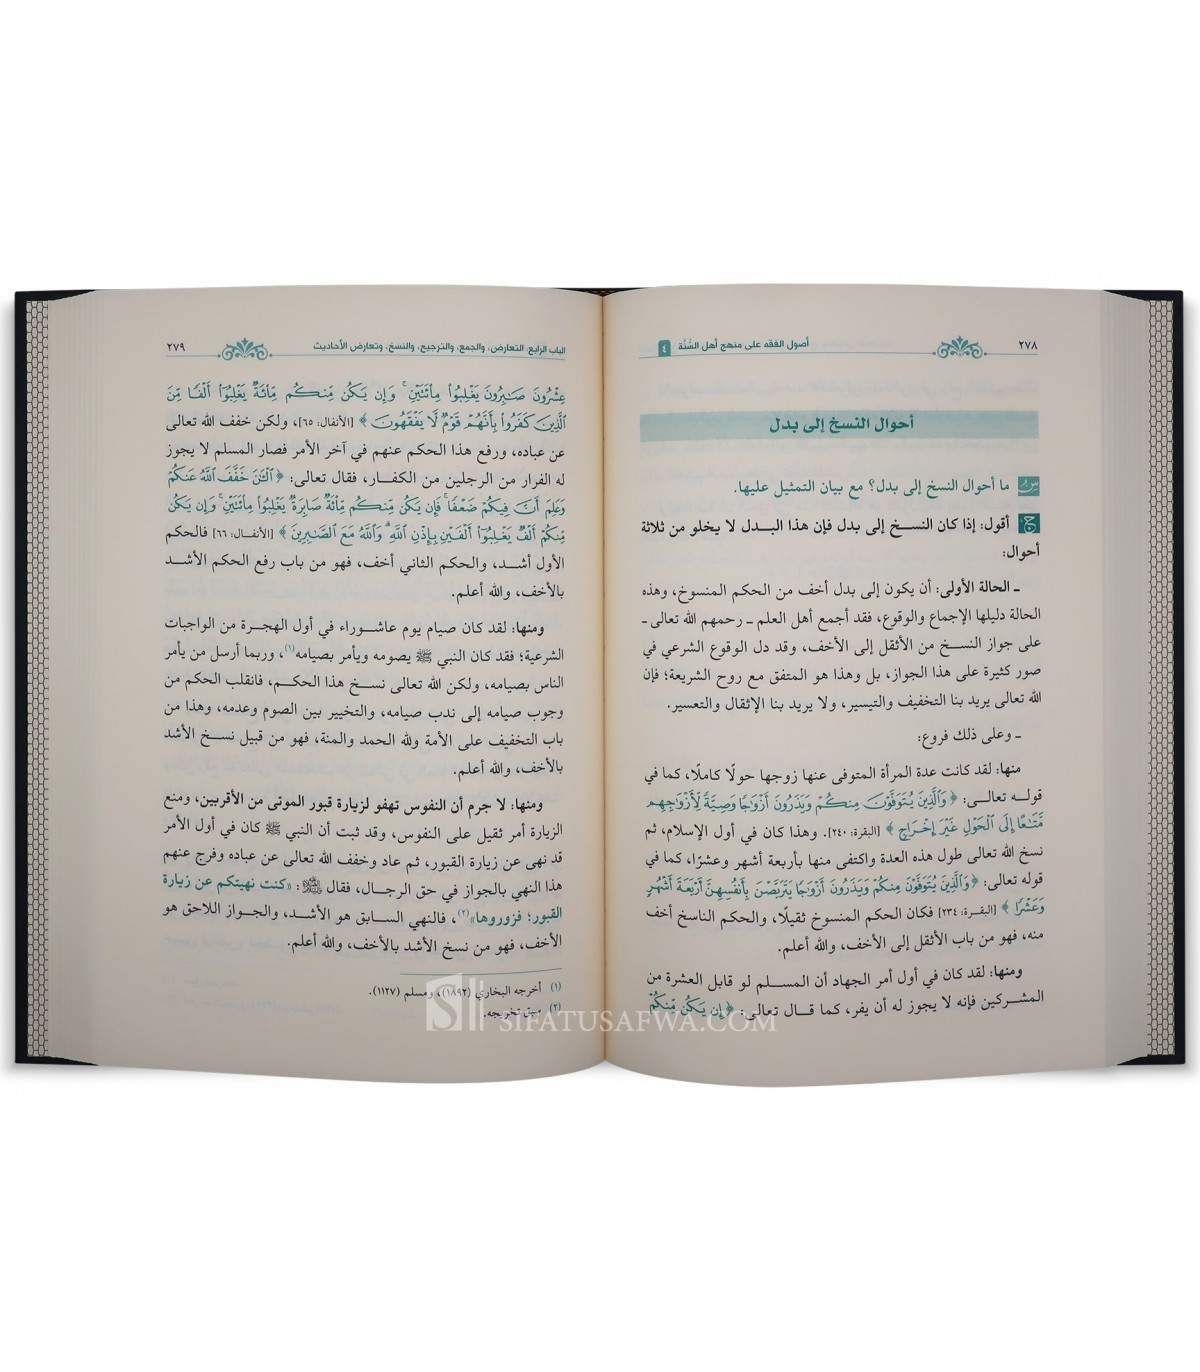 ٢٧٨
أصول الفقه على منهج أهل السُّنَّة ٤
أحوال النسخ إلى بدل
س ما أحوال النسخ إلى بدل؟ مع بيان التمثيل عليها.
ج أقول: إذا كان النسخ إلى بدل فإن هذا البدل لا يخلو من ثلاثة
أحوال:
ـ الحالة الأولى: أن يكون إلى بدل أخف من الحكم المنسوخ، وهذه
الحالة دليلها الإجماع والوقوع، فقد أجمع أهل العلم ـ رحمهم الله تعالى ـ
على جواز النسخ من الأثقل إلى الأخف، وقد دل الوقوع الشرعي في
صور كثيرة على هذا الجواز، بل وهذا هو المتفق مع روح الشريعة؛ فإن
الله تعالى يريد بنا التخفيف والتيسير، ولا يريد بنا الإثقال والتعسير.
ـ وعلى ذلك فروع:
منها: لقد كانت عدة المرأة المتوفى عنها زوجها حولًا كاملًا، كما في
قوله تعالى: ﴿وَٱلَّذِينَ يُتَوَفَّوْنَ مِنكُمْ وَيَذَرُونَ أَزْوَٰجًا وَصِيَّةً لِّأَزْوَٰجِهِم
مَّتَٰعًا إِلَى ٱلْحَوْلِ غَيْرَ إِخْرَاجٍ﴾ [البقرة: ٢٤٠]. وهذا كان في أول الإسلام، ثم
نسخ الله تعالى طول هذه العدة واكتفى منها بأربعة أشهر وعشرًا، كما في
قوله تعالى: ﴿وَٱلَّذِينَ يُتَوَفَّوْنَ مِنكُمْ وَيَذَرُونَ أَزْوَٰجًا يَتَرَبَّصْنَ بِأَنفُسِهِنَّ أَرْبَعَةَ أَشْهُرٍ
وَعَشْرًا﴾ [البقرة: ٢٣٤] فكان الحكم المنسوخ ثقيلًا، والحكم الناسخ أخف
منه، فهو من باب الأثقل إلى الأخف، والله أعلم.
ومنها: لقد كان في أول أمر الجهاد أن المسلم لو قابل العشرة من
المشركين فإنه لا يجوز له أن يفر، كما قال تعالى: ﴿إِن يَكُن مِّنكُمْ
الباب الرابع: التعارض، والجمع، والترجيح، والنسخ، وتعارض الأحاديث
٢٧٩
عِشْرُونَ صَٰبِرُونَ يَغْلِبُوا۟ مِا۟ئَتَيْنِ ۚ وَإِن يَكُن مِّنكُم مِّا۟ئَةٌ يَغْلِبُوٓا۟ أَلْفًا مِّنَ
ٱلَّذِينَ كَفَرُوا۟ بِأَنَّهُمْ قَوْمٌ لَّا يَفْقَهُونَ﴾ [الأنفال: ٦٥]، ولكن خفف الله تعالى
عن عباده، ورفع هذا الحكم عنهم في آخر الأمر فصار المسلم لا يجوز
له الفرار من الرجلين من الكفار، فقال تعالى: ﴿ٱلْـَٰٔنَ خَفَّفَ ٱللَّهُ عَنكُمْ
وَعَلِمَ أَنَّ فِيكُمْ ضَعْفًا ۚ فَإِن يَكُن مِّنكُم مِّا۟ئَةٌ صَابِرَةٌ يَغْلِبُوا۟ مِا۟ئَتَيْنِ ۚ وَإِن يَكُن
مِّنكُمْ أَلْفٌ يَغْلِبُوٓا۟ أَلْفَيْنِ بِإِذْنِ ٱللَّهِ ۗ وَٱللَّهُ مَعَ ٱلصَّٰبِرِينَ﴾ [الأنفال: ٦٦] فالحكم
الأول أشد، والحكم الثاني أخف، فهو من باب رفع الحكم الأشد
بالأخف، والله أعلم.
ومنها: لقد كان صيام يوم عاشوراء في أول الهجرة من الواجبات
الشرعية؛ فقد كان النبي ﷺ يصومه ويأمر بصيامه(١)، وربما أرسل من يأمر
الناس بصيامه، ولكن الله تعالى نسخ هذا الحكم، فانقلب الحكم من
وجوب صيامه إلى ندب صيامه، والتخيير بين الصوم وعدمه، وهذا من
باب التخفيف على الأمة ولله الحمد والمنة، فهو من قبيل نسخ الأشد
بالأخف، والله أعلم.
ومنها: لا جرم أن النفوس تهفو لزيارة قبور الموتى من الأقربين، ومنع
الزيارة أمر ثقيل على النفوس، وقد ثبت أن النبي ﷺ كان في أول الأمر
قد نهى عن زيارة القبور، ثم عاد وخفف الله تعالى عن عباده وفرج عنهم
هذا النهي بالجواز في حق الرجال، فقال ﷺ: «كنت نهيتكم عن زيارة
القبور؛ فزوروها»(٢)، فالنهي السابق هو الأشد، والجواز اللاحق هو
الأخف، فهو من نسخ الأشد بالأخف، والله أعلم.
(١) أخرجه البخاري (١٨٩٢)، ومسلم (١١٢٧).
(٢) سبق تخريجه.
SIFATUSAFWA.COM